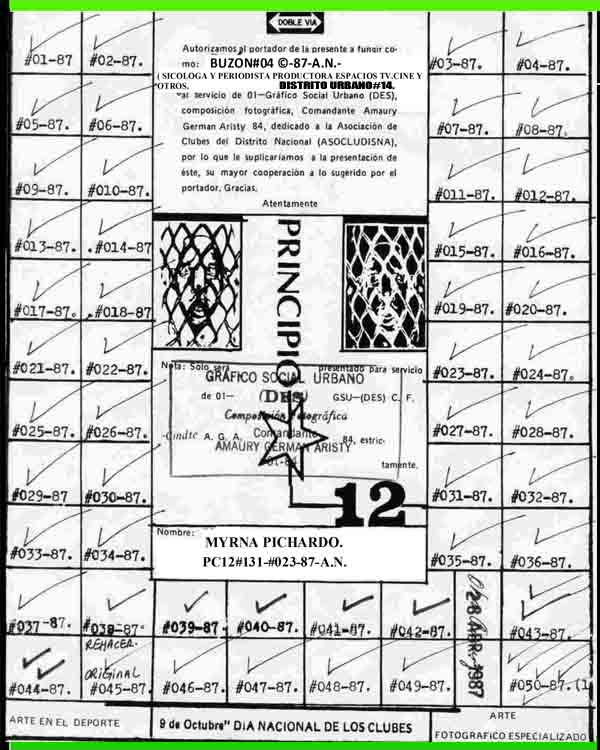 DOBLE VIA
Autorizamos al portador de la presente a fungir co-
mo: BUZON#04 ©-87-A.N.-
( SICOLOGA Y PERIODISTA PRODUCTORA ESPACIOS TV.CINE Y
OTROS. DISTRITO URBANO#14.
al servicio de 01—Gráfico Social Urbano (DES),
composición fotográfica, Comandante Amaury
German Aristy 84, dedicado a la Asociación de
Clubes del Distrito Nacional (ASOCLUDISNA),
por lo que le suplicaríamos a la presentación de
éste, su mayor cooperación a lo sugerido por el
portador. Gracias.
Atentamente
PRINCIPIO
Nota: Solo será presentado para servicio
GRÁFICO SOCIAL URBANO
de 01— (DES) GSU—(DES) C. F.
Composición Fotográfica
-Cmdte A. G. A. Comandante 84, estric-
AMAURY GERMAN ARISTY
01-84
tamente.
12
Nombre:
MYRNA PICHARDO.
PC12#131-#023-87-A.N.
#01-87 #02-87. #03-87. #04-87.
#05-87. #06-87. #07-87. #08-87.
#09-87. #010-87. #011-87. #012-87.
#013-87. #014-87 #015-87. #016-87.
#017-87. #018-87 #019-87. #020-87.
#021-87. #022-87. #023-87. #024-87.
#025-87. #026-87. #027-87. #028-87.
#029-87 #030-87. #031-87. #032-87.
#033-87. #034-87. #035-87. #036-87.
#037-87. #038-87. #039-87. #040-87. #041-87. #042-87. #043-87.
REHACER.
ORIGINAL
28 ABR. 1987
#044-87. #045-87. #046-87. #047-87. #048-87. #049-87. #050-87.(1
ARTE EN EL DEPORTE
9 de Octubre" DIA NACIONAL DE LOS CLUBES
ARTE
FOTOGRAFICO ESPECIALIZADO